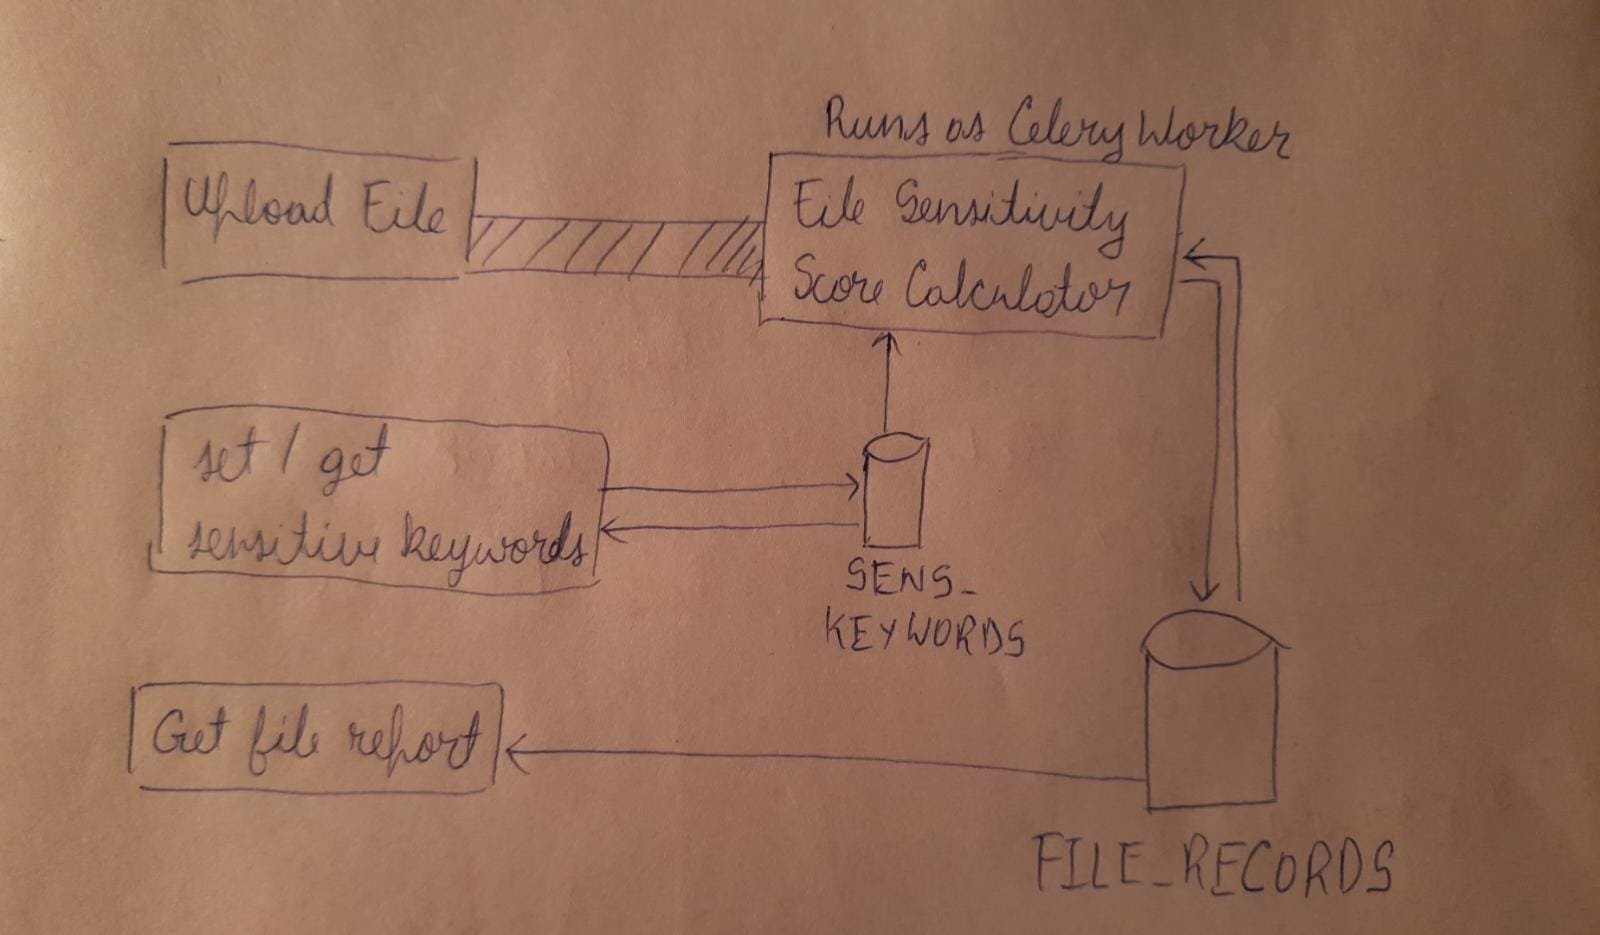 Runs as Celery Worker
Upload File
File Sensitivity
Score Calculator
set / get
sensitive keywords
SENS_
KEYWORDS
Get file report
FILE_RECORDS